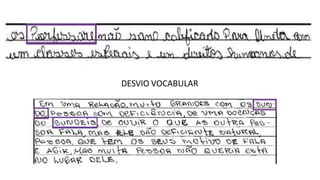 os Professore não sano calificado Para linda com
um classes espeiais e un direitos humanos de
DESVIO VOCABULAR
EM UMA RELAÇÃO, MUITO GRANDES COM OS SUR-
DO PESSOA COM DEFICIÊNCIA, DE UMA DOENCAS
DO SUNDEIS DE OUVIR O QUE AS OUTRA PES-
SOA FALA, MAS ELE SÃO DEFICIENTE NATURAL,
PESSOA QUE TEM OS SEUS MOTIVO DE FALA
E AGIR, MAS MUITA PESSOA NÃO QUERIA ESTA
NO LUGAR DELE.